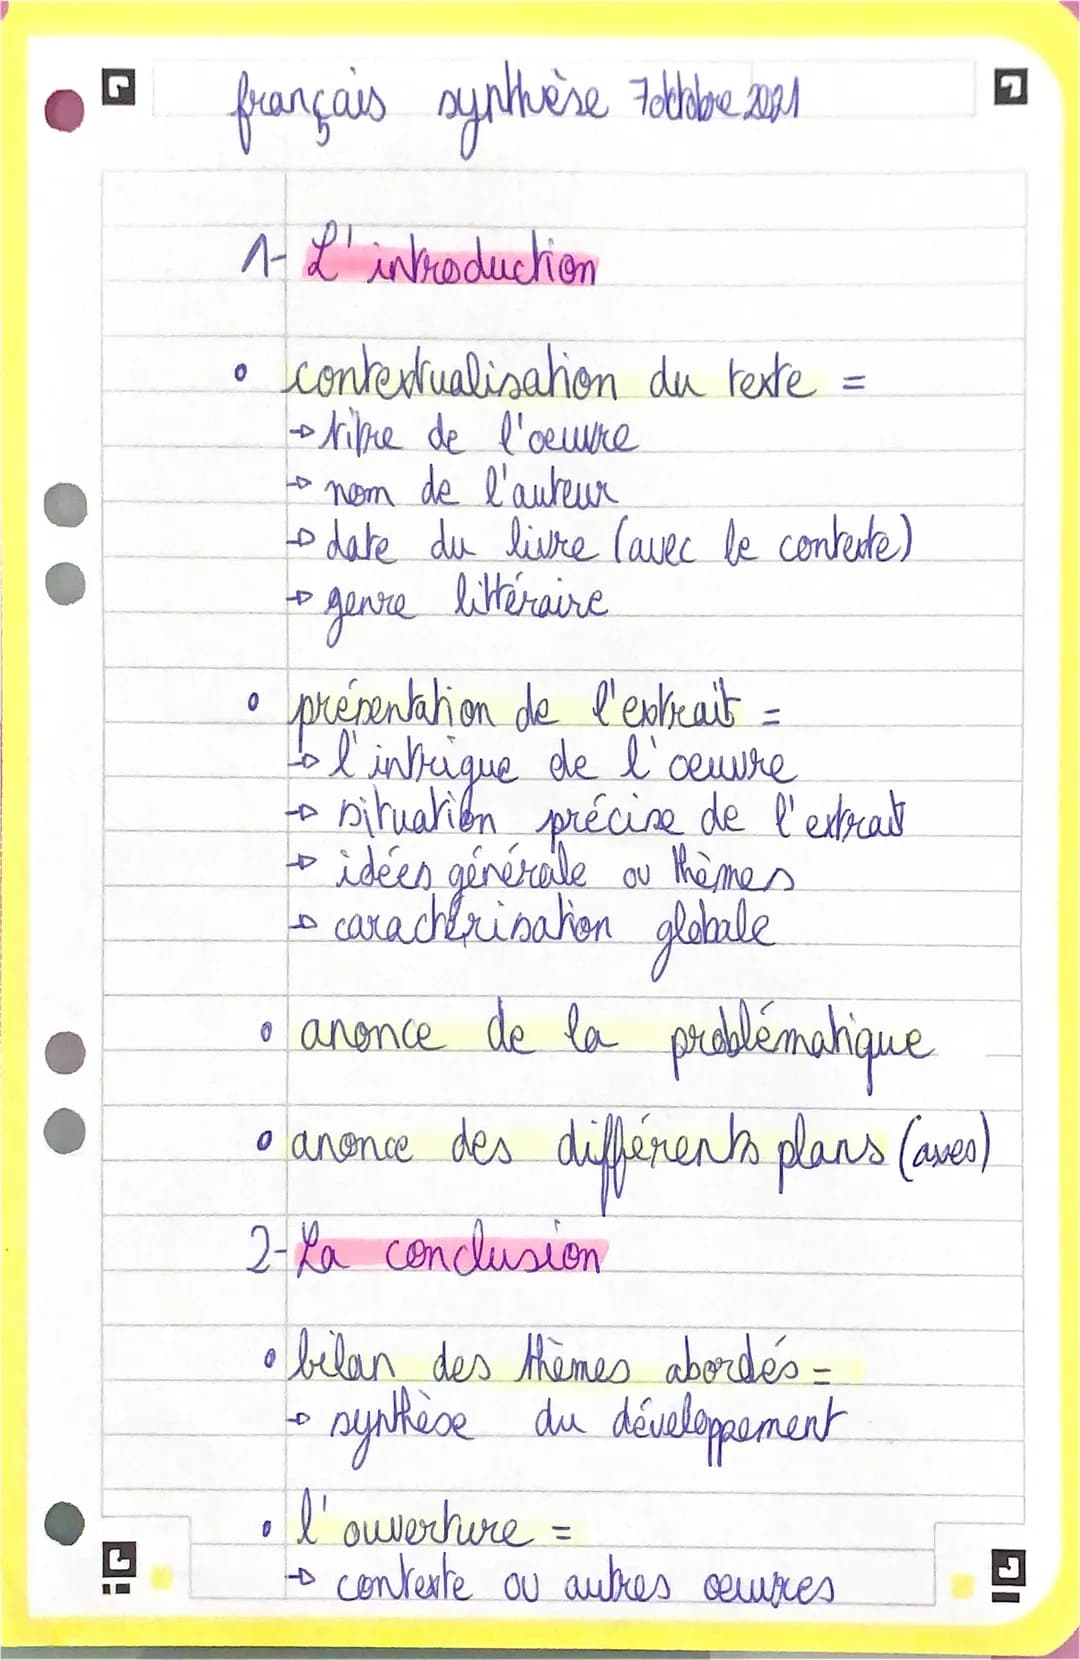 français synthèse 7 octobre 2021
1- L'introduction
• contextualisation du texte =
→ titre de l'oeuvre
→ nom de l'auteur
→ date du livre (avec le contexte)
→ genre littéraire
• présentation de l'extrait =
→ l'intrigue de l'oeuvre
→ situation précise de l'extrait
→ idées générale ou thèmes
→ caractérisation globale
• anonce de la problématique
• anonce des différents plans (axes)
2- La conclusion
• bilan des thèmes abordés =
→ synthèse du développement
• l'ouverture =
→ contexte ou autres oeuvres